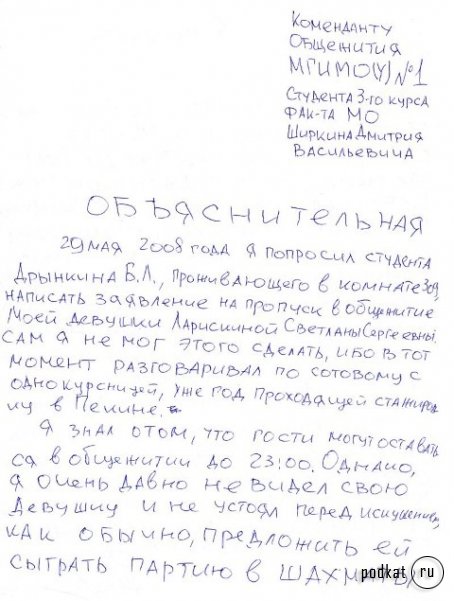 Коменданту
Общежития
МГИМО(У) №1
Студента 3-го курса
Фак-та МО
Ширкина Дмитрия
Васильевича
Объяснительная
29 мая 2008 года я попросил студента
Дрынкина В.Л., проживающего в комнате 309,
написать заявление на пропуск в общежитие
Моей девушки Ларискиной Светланы Сергеевны.
Сам я не мог этого сделать, ибо в тот
момент разговаривал по сотовому с
однокурсницей, уже год проходящей стажиров
ку в Пекине.
Я знал о том, что гости могут оставать
ся в общежитии до 23:00. Однако,
я очень давно не видел свою
Девушку и не устоял перед искушением,
как обычно, предложить ей
сыграть партию в шахматы
podkat.ru